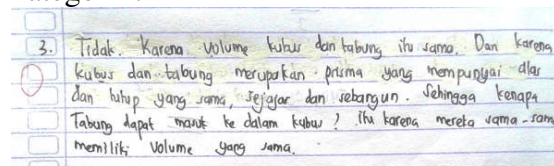 3. Tidak. Karena volume kubus dan tabung itu sama. Dan karena
kubus dan tabung merupakan prisma yang mempunyai alas
dan tutup yang sama, sejajar dan sebangun. Sehingga kenapa
Tabung dapat masuk ke dalam kubus? itu karena mereka sama-sam
memiliki volume yang sama.